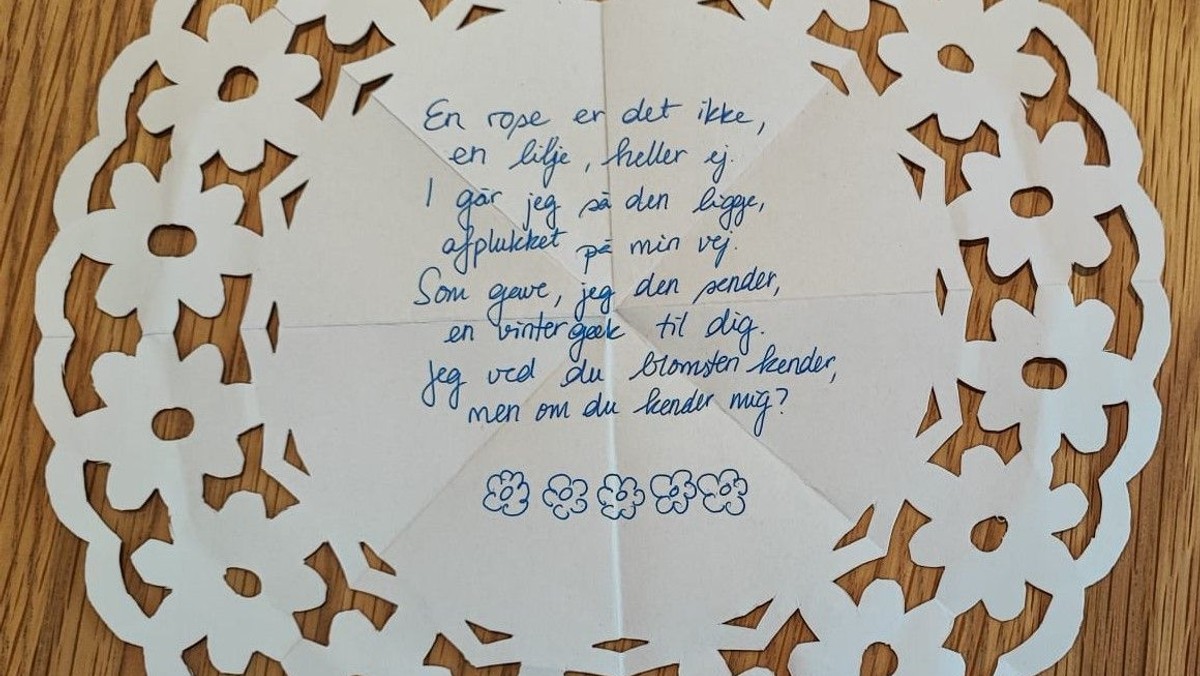 En rose er det ikke,
en lilje, heller ej.
I går jeg så den ligge,
afplukket på min vej.
Som gave, jeg den sender,
en vintergæk til dig.
Jeg ved du blomsten kender,
men om du kender mig?